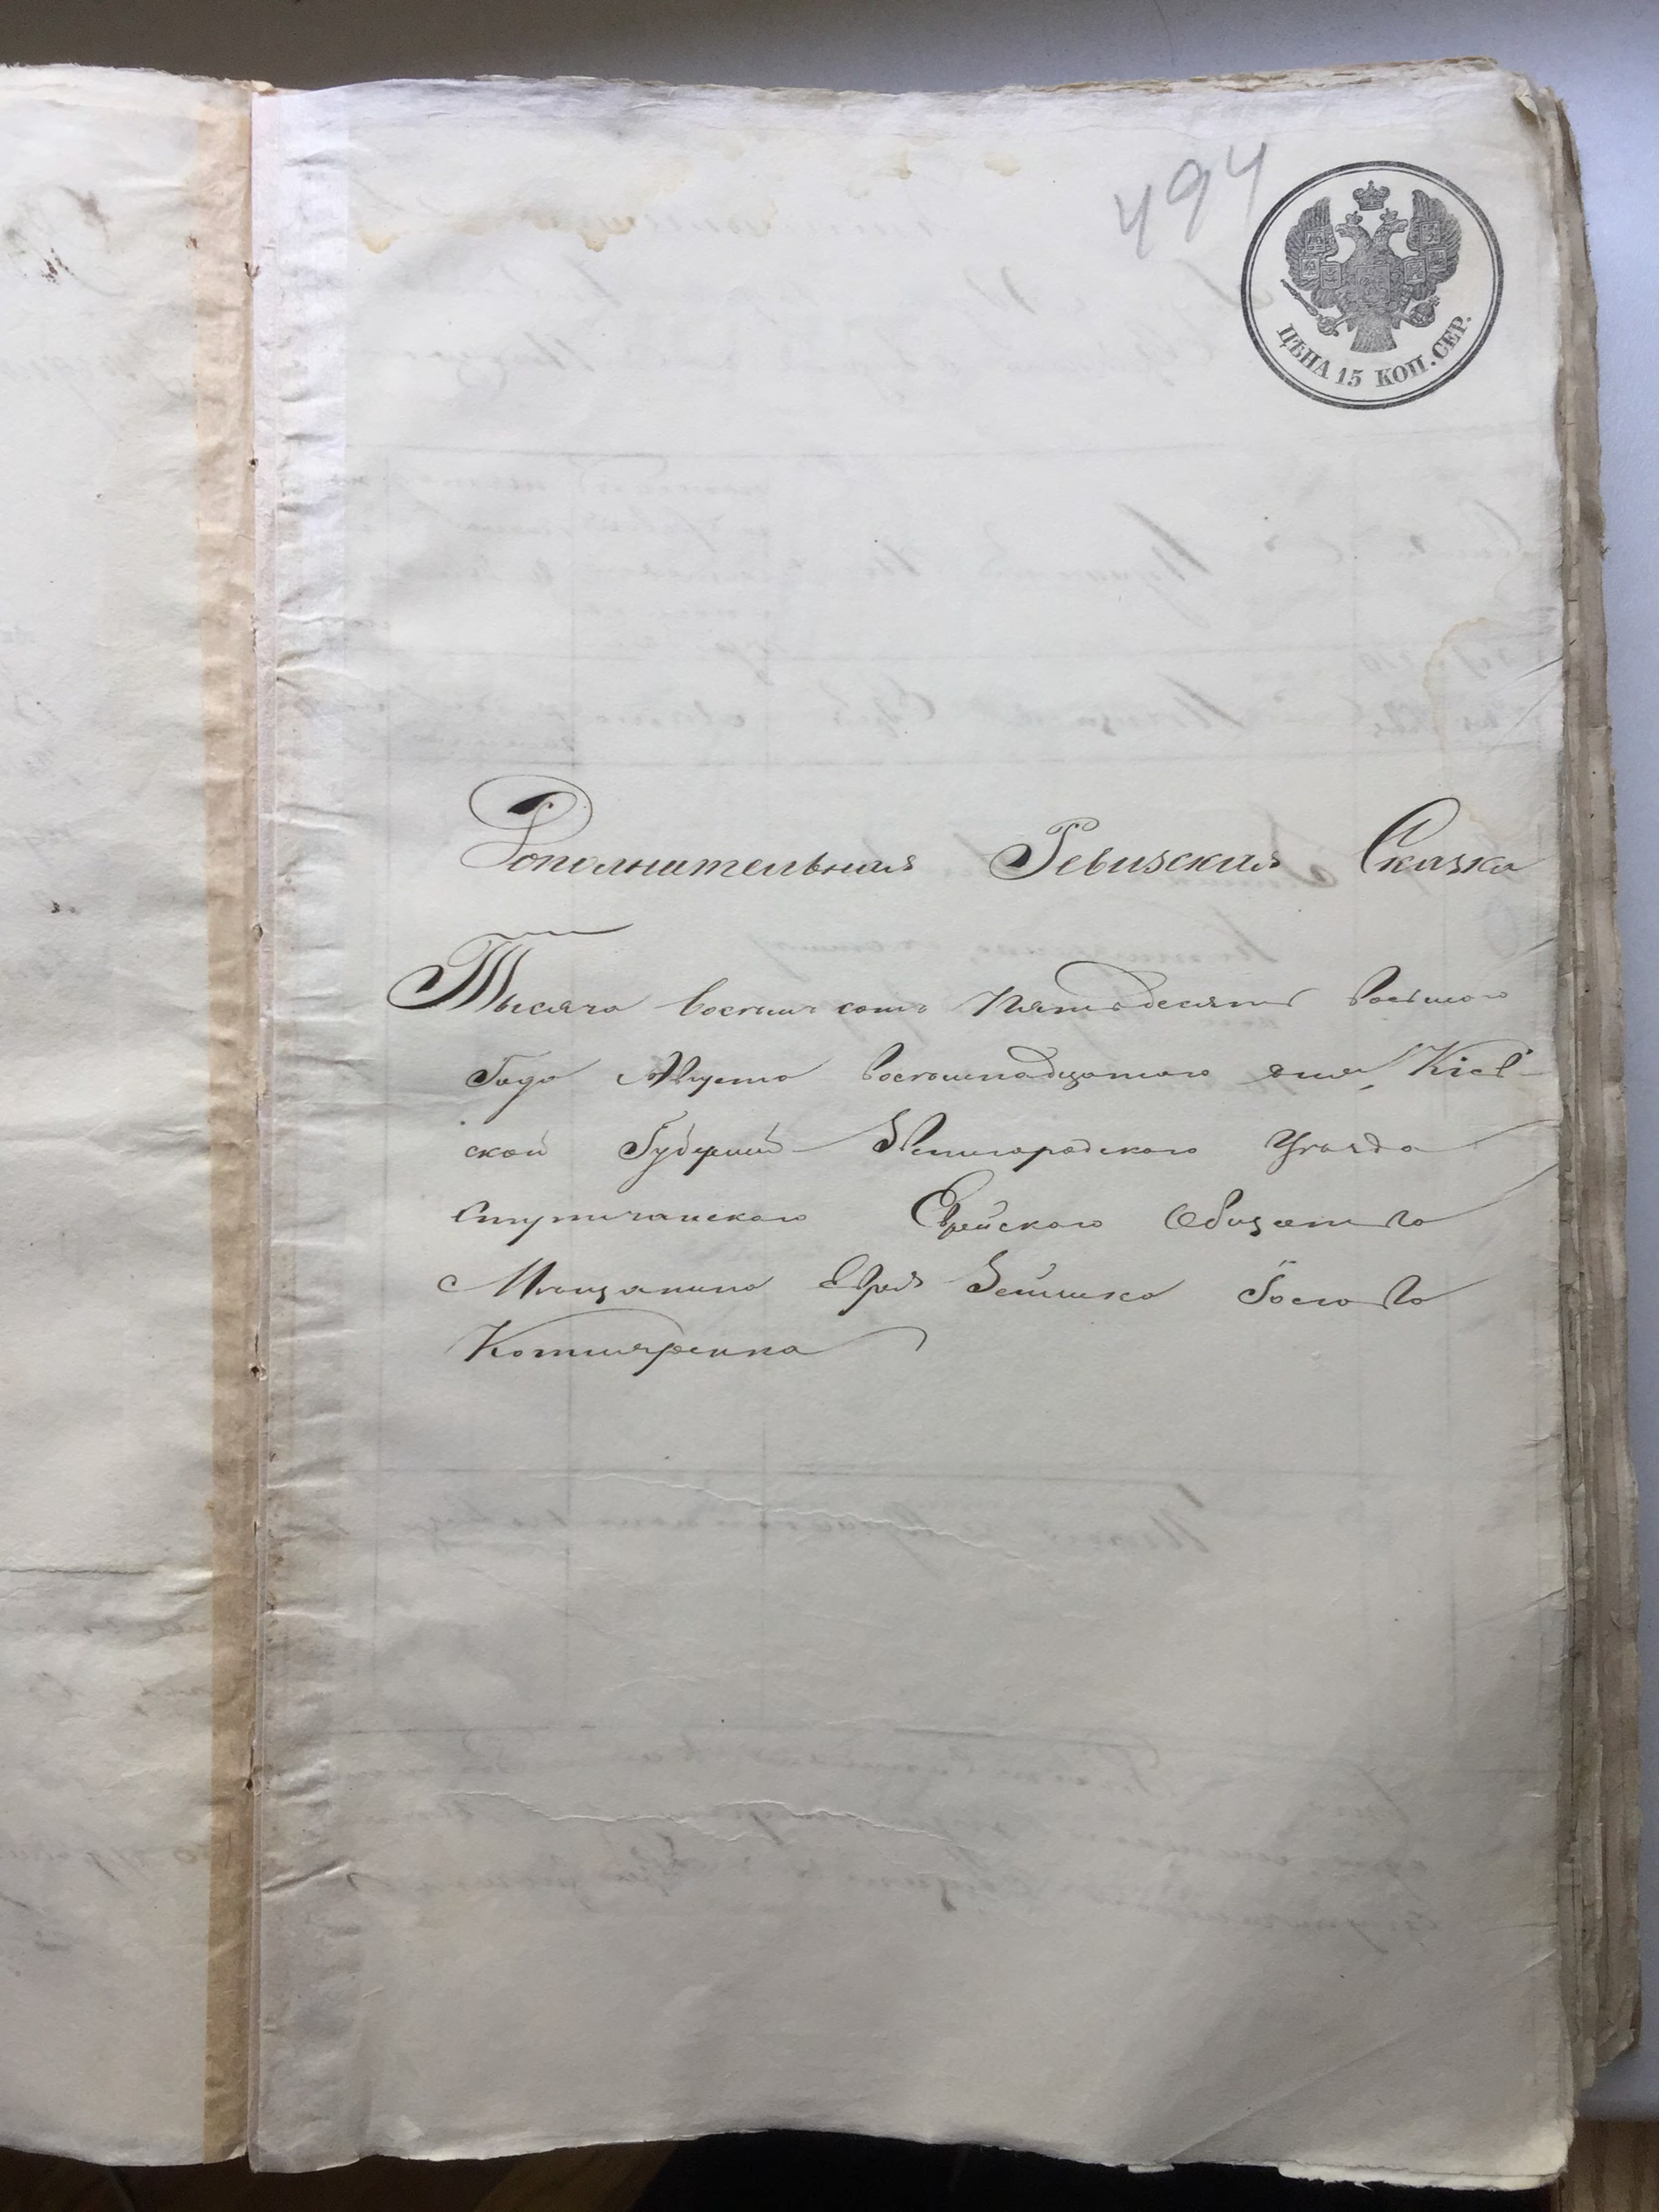 494
ЦѢНА 15 КОП. СЕР.
Дополнительная Ревизская Сказка
Тысяча восемь сотъ пятьдесятъ восьмого
года Августа восемнадцатого дня, Кіев-
ской Губерніи Звенигородского Уѣзда
Еврейского Общества
Мѣщанина Еврея
Котляренка